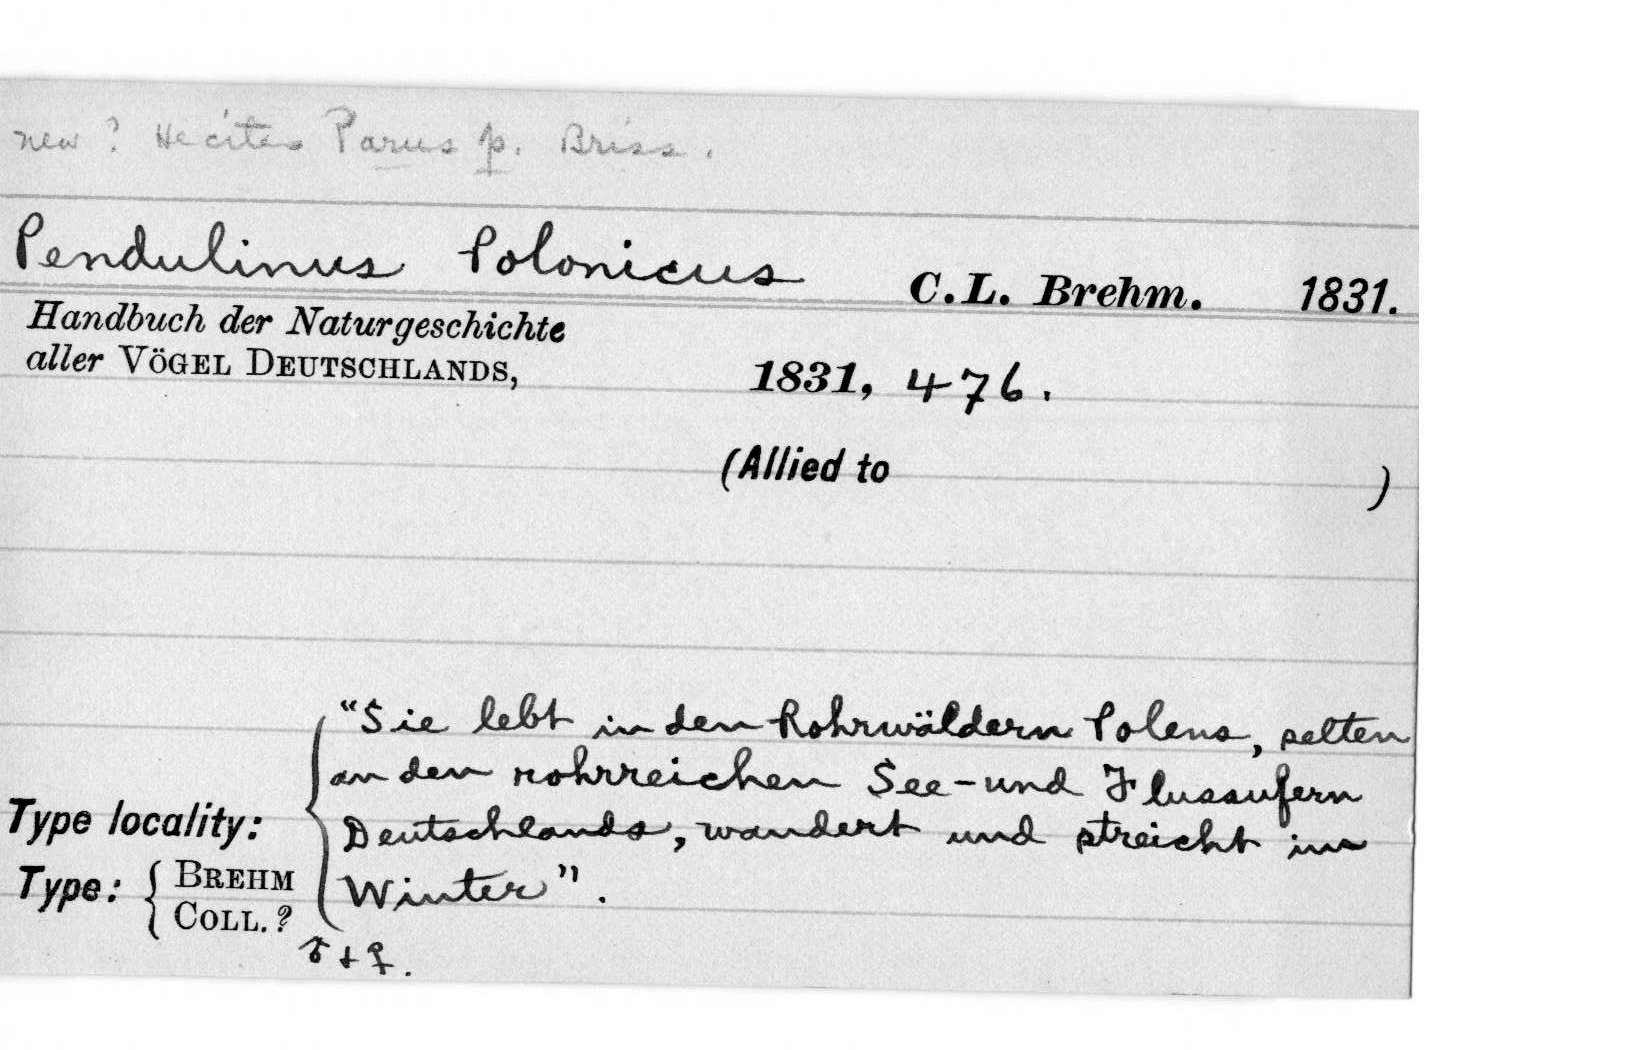 new? He cites Parus p. Briss.
Pendulinus Polonicus C.L. Brehm. 1831.
Handbuch der Naturgeschichte
aller VÖGEL DEUTSCHLANDS, 1831, 476.
(Allied to )
"Sie lebt in den Rohrwäldern Polens, selten
an den rohrreichen See- und Flussufern
Type locality: Deutschlands, wandert und streicht im
Type: { BREHM COLL. ? Winter".
♂ + ♀.